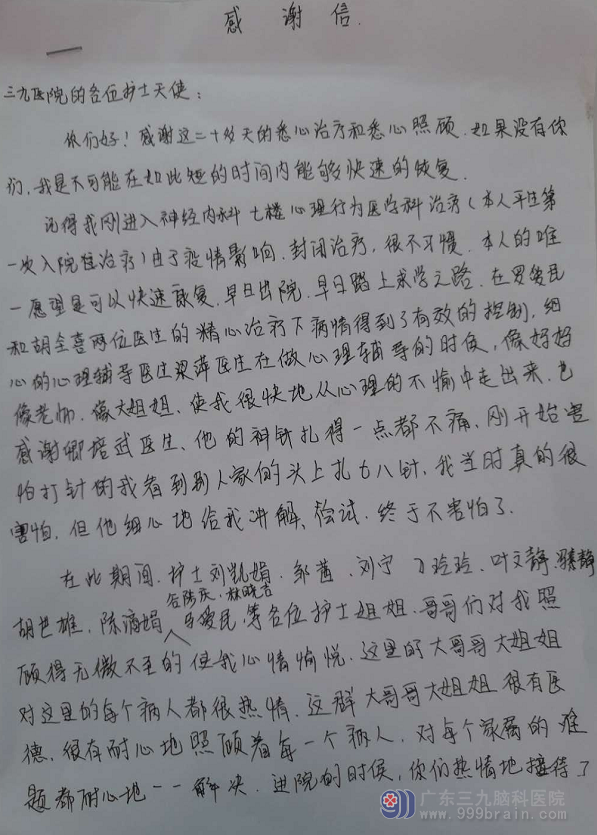 感谢信.
三九医院的各位护士天使:
你们好!感谢这二十多天的悉心治疗和悉心照顾.如果没有你
们,我是不可能在如此短的时间内能够快速的恢复.
记得我刚进入神经内科七楼心理行为医学科治疗(本人平生第
一次入院治疗)由于疫情影响.封闭治疗,很不习惯.本人的唯
一愿望是可以快速康复.早日出院.早日踏上求学之路.在罗爱民
和胡全喜两位医生的精心治疗下病情得到了有效的控制.细
心的心理辅导医生梁萍医生在做心理辅导的时候,像妈妈
像老师.像大姐姐、使我很快地从心理的不愉中走出来.也
感谢卿培武医生、他的神针扎得一点都不痛,刚开始害
怕打针的我看到别人家的头上扎七八针,我当时真的很
害怕.但他细心地给我讲解、尝试.终于不害怕了.
在此期间.护士刘凯娟.邹茜.刘宁 刁玲玲.叶文静.静
胡世雄.陈滴娟 爱民,等各位护士姐姐.哥哥们对我照
顾得无微不至的使我心情愉悦.这里的大哥哥大姐姐
对这里的每个病人都很热情.这群大哥哥大姐姐很有医
德.很有耐心地照顾着每一个病人.对每个家属的难
题都耐心地一一解决.进院的时候,你们热情地接待了
广东三九脑科医院
www.999brain.com